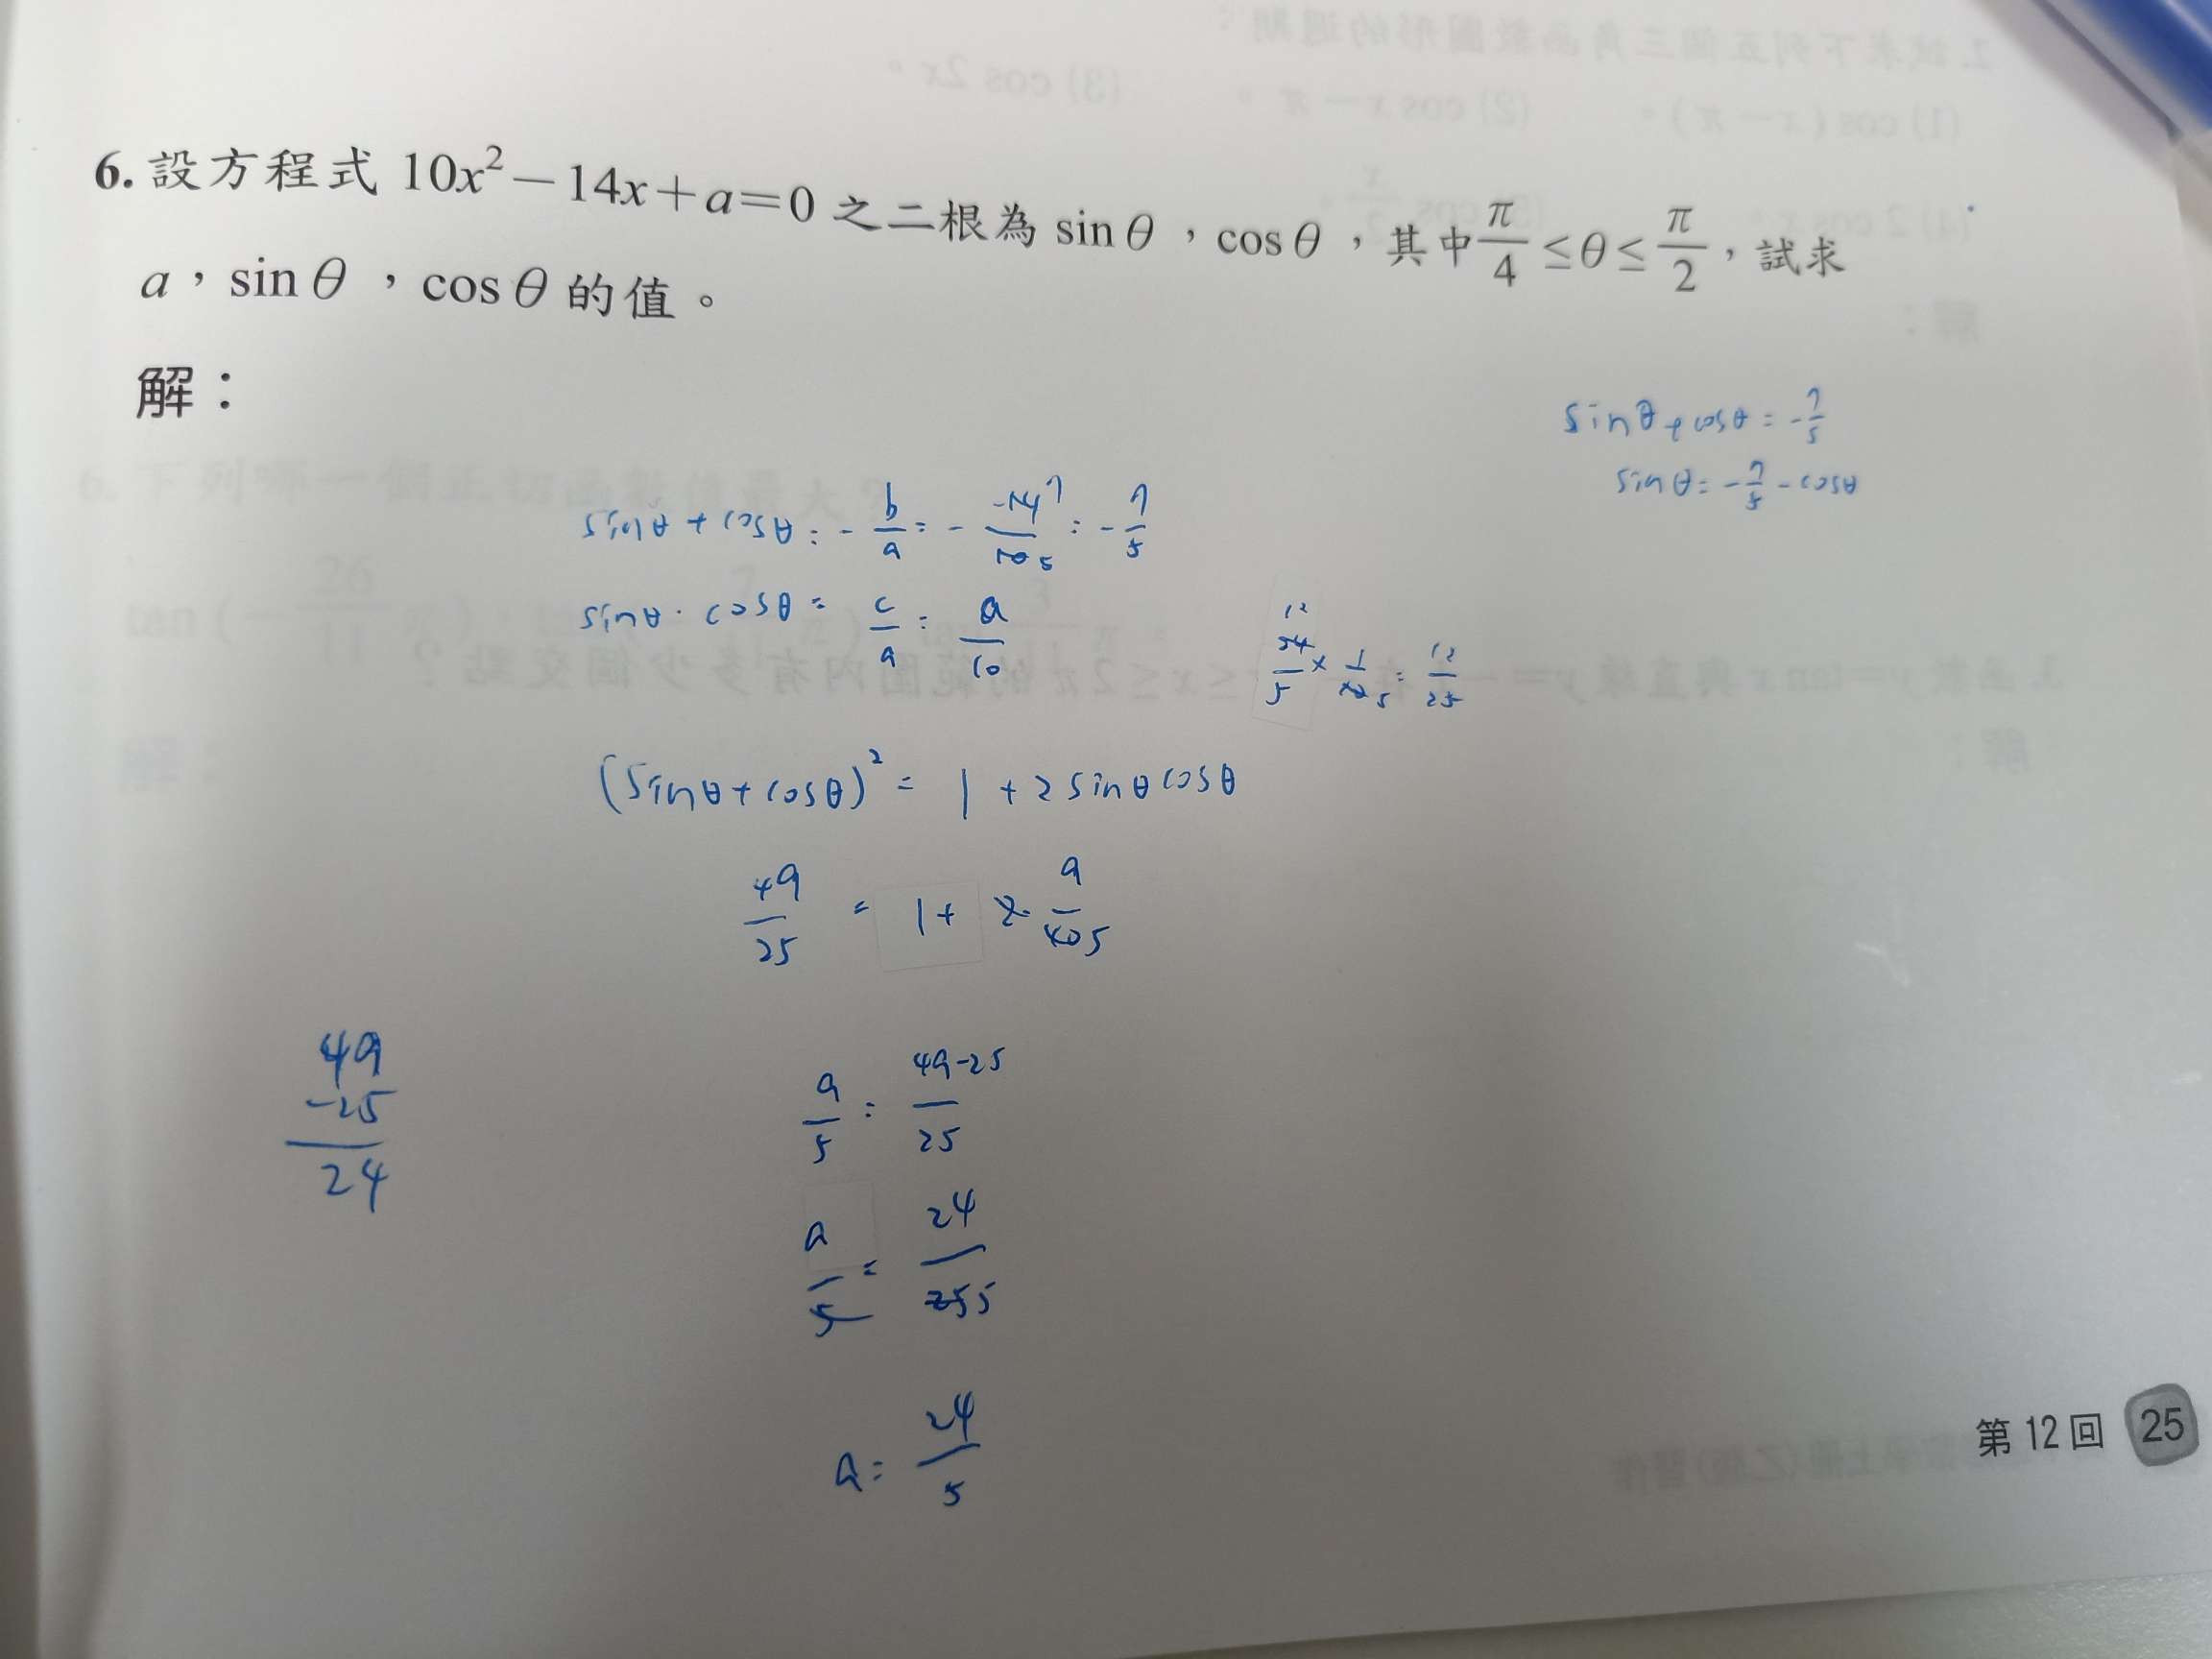 6. 設方程式 10x²－14x＋a＝0 之二根為 sin θ，cos θ，其中 π/4 ≤ θ ≤ π/2，試求
a，sin θ，cos θ 的值。
解：
sinθ + cosθ = -7/5
sinθ = -7/5 - cosθ
sinθ + cosθ = - b/a = - -14 7/10 5 = - 7/5
sinθ · cosθ = c/a = a/10
12
24/5 × 1/10 5 = 12/25
(sinθ + cosθ)² = 1 + 2 sinθ cosθ
49/25 = 1 + 2 · a/10 5
49
-25
24
a/5 = 49-25/25
a/5 = 24/25 5
a = 24/5
第 12 回 25